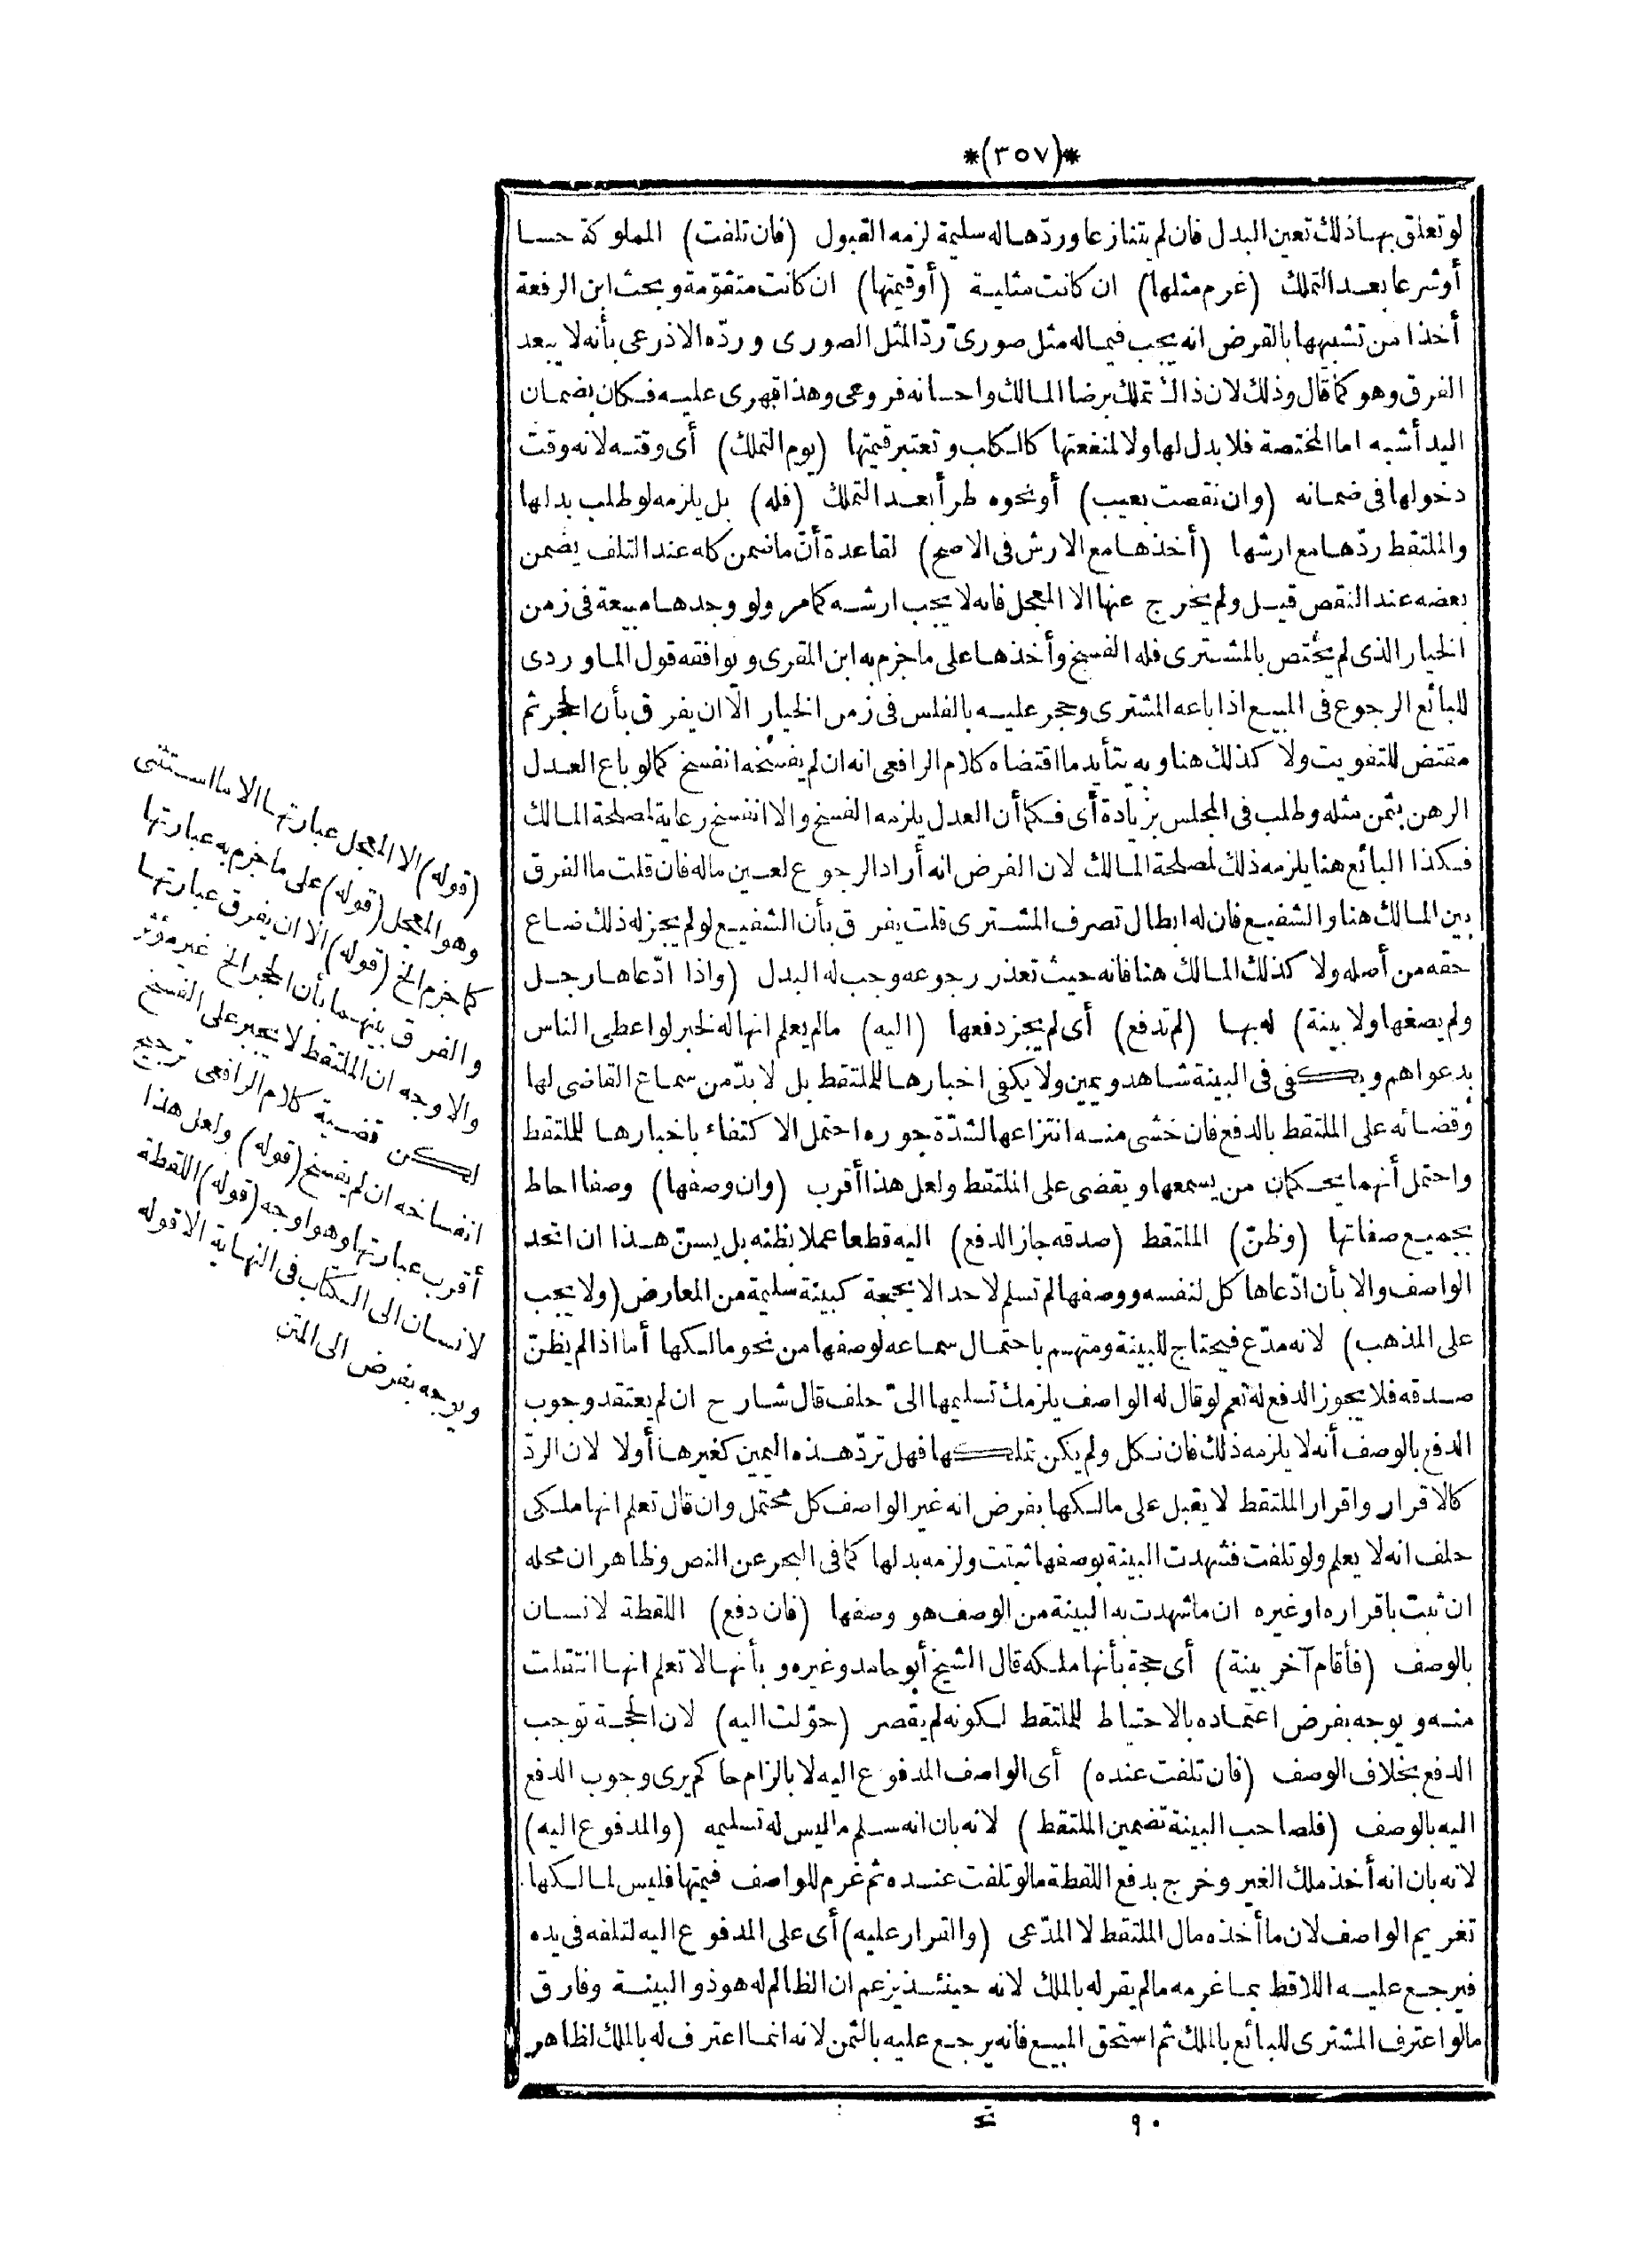 *(٣٥٧)*
لو تعلق بها ذلك تعين البدل فان لم يتنازعا وردّها له سليمة لزمه القبول (فان تلفت) المملوكة حسا
أو شرعا بعد التملك (غرم مثلها) ان كانت مثلية (أو قيمتها) ان كانت متقوّمة و بحث ابن الرفعة
أخذا من تشبيهها بالقرض انه يجب فيما له مثل صورىّ ردّ المثل الصورى و ردّه الاذرعى بأنه لا يبعد
الفرق وهو كما قال وذلك لان ذاك تملك برضا المالك واحسانه فروعى وهذا قهرى عليه فكان بضمان
اليد أشبه اما المختصة فلا بدل لها ولا لمنفعتها كالكلب و تعتبر قيمتها (يوم التملك) أى وقته لانه وقت
دخولها فى ضمانه (وان نقصت بعيب) أو نحوه طرأ بعد التملك (فله) بل يلزمه لو طلب بدلها
والملتقط ردّها مع ارشها (أخذها مع الارش فى الاصح) لقاعدة أنّ ما ضمن كله عند التلف يضمن
بعضه عند النقص قيل ولم يخرج عنها الا المعجل فانه لا يجب ارشه كما مر ولو وجدها مبيعة فى زمن
الخيار الذى لم يختص بالمشترى فله الفسخ وأخذها على ما جزم به ابن المقرى و يوافقه قول الماوردى
للبائع الرجوع فى المبيع اذا باعه المشترى وحجر عليه بالفلس فى زمن الخيار الّا ان يفرق بأن الحجر ثم
مقتض للتفويت ولا كذلك هنا و به يتأيد ما اقتضاه كلام الرافعى انه ان لم يفسخه انفسخ كما لو باع العدل
الرهن بثمن مثله وطلب فى المجلس بزيادة أى فكما أن العدل يلزمه الفسخ والا انفسخ رعاية لمصلحة المالك
فكذا البائع هنا يلزمه ذلك لمصلحة المالك لان الفرض انه أراد الرجوع لعين ماله فان قلت ما الفرق
بين المالك هنا والشفيع فان له ابطال تصرف المشترى قلت يفرق بأن الشفيع لو لم يجز له ذلك ضاع
حقه من أصله ولا كذلك المالك هنا فانه حيث تعذر رجوعه وجب له البدل (واذا ادّعاها رجل
ولم يصفها ولا بينة) له بها (لم تدفع) أى لم يجز دفعها (اليه) مالم يعلم انها له لخبر لو اعطى الناس
بدعواهم ويكفى فى البينة شاهد و يمين ولا يكفى اخبارها للملتقط بل لا بدّ من سماع القاضى لها
وقضائه على الملتقط بالدفع فان خشى منه انتزاعها لشدّة جوره احتمل الاكتفاء باخبارها للملتقط
واحتمل أنهما يحكمان من يسمعها و يقضى على الملتقط ولعل هذا أقرب (وان وصفها) وصفا احاط
بجميع صفاتها (وظنّ) الملتقط (صدقه جاز الدفع) اليه قطعا عملا بظنه بل يسنّ هذا ان اتحد
الواصف والا بأن ادّعاها كل لنفسه ووصفها لم تسلم لاحد الا بحجة كبينة سليمة من المعارض (ولا يجب
على المذهب) لانه مدّع فيحتاج للبينة ومتهم باحتمال سماعه لوصفها من نحو مالكها أما اذا لم يظنّ
صدقه فلا يجوز الدفع له نعم لو قال له الواصف يلزمك تسليمها الىّ حلف قال شارح ان لم يعتقد وجوب
الدفع بالوصف أنه لا يلزمه ذلك فان نكل ولم يكن تملكها فهل تردّ هذه اليمين كغيرها أولا لان الردّ
كالاقرار واقرار الملتقط لا يقبل على مالكها بفرض انه غير الواصف كل محتمل وان قال تعلم انها ملكى
حلف انه لا يعلم ولو تلفت فشهدت البينة بوصفها ثبتت ولزمه بدلها كما فى البحر عن النص وظاهر ان محله
ان ثبت باقراره او غيره ان ما شهدت به البينة من الوصف هو وصفها (فان دفع) اللقطة لانسان
بالوصف (فأقام آخر بينة) أى حجة بأنها ملكه قال الشيخ أبو حامد وغيره و بأنها لا تعلم انها انتقلت
منه و يوجه بفرض اعتماده بالاحتياط للملتقط لكونه لم يقصر (حوّلت اليه) لان الحجة توجب
الدفع بخلاف الوصف (فان تلفت عنده) أى الواصف المدفوع اليه لا بالزام حاكم يرى وجوب الدفع
اليه بالوصف (فلصاحب البينة تضمين الملتقط) لانه بان انه سلم ما ليس له تسليمه (والمدفوع اليه)
لانه بان انه أخذ ملك الغير وخرج بدفع اللقطة ما لو تلفت عنده ثم غرم للواصف قيمتها فليس لمالكها
تغريم الواصف لان ما أخذه مال الملتقط لا المدّعى (والقرار عليه) أى على المدفوع اليه لتلفه فى يده
فيرجع عليه اللاقط بما غرمه مالم يقر له بالملك لانه حينئذ يزعم ان الظالم له هو ذو البينة وفارق
ما لو اعترف المشترى للبائع بالملك ثم استحق المبيع فانه يرجع عليه بالثمن لانه انما اعترف له بالملك لظاهر
(قوله) الا المعجل عبارتها الا ما استثنى
وهو المعجل (قوله) على ما جزم به عبارتها
كما جزم الخ (قوله) الا ان يفرق عبارتها
والفرق بينهما بأن الحجر الخ غير مؤثر
والاوجه ان الملتقط لا يجبر على الفسخ
لكن قضية كلام الرافعى ترجيح
انفساخه ان لم يفسخ (قوله) ولعل هذا
أقرب عبارتها وهو اوجه (قوله) اللقطة
لانسان الى الكتاب فى النهاية الا قوله
و يوجه بفرض الى المتن
٩٠